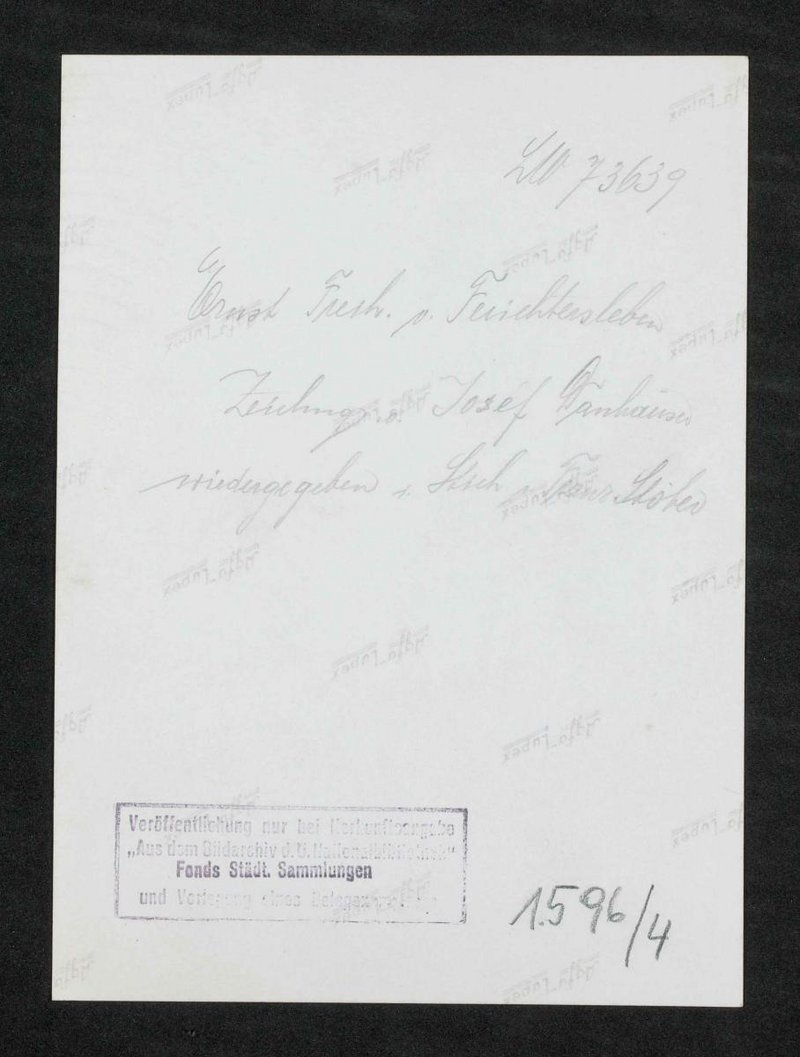 LW 73639
Ernst Freih. v. Feuchtersleben
Zeichng. v. Josef Danhauser
wiedergegeben i. Stich v. Franz Stöber
Veröffentlichung nur bei Herkunftsangabe
„Aus dem Bildarchiv d. Ö. Nationalbibliothek“
Fonds Städt. Sammlungen
und Vorlegung eines Beleges
1.596/4